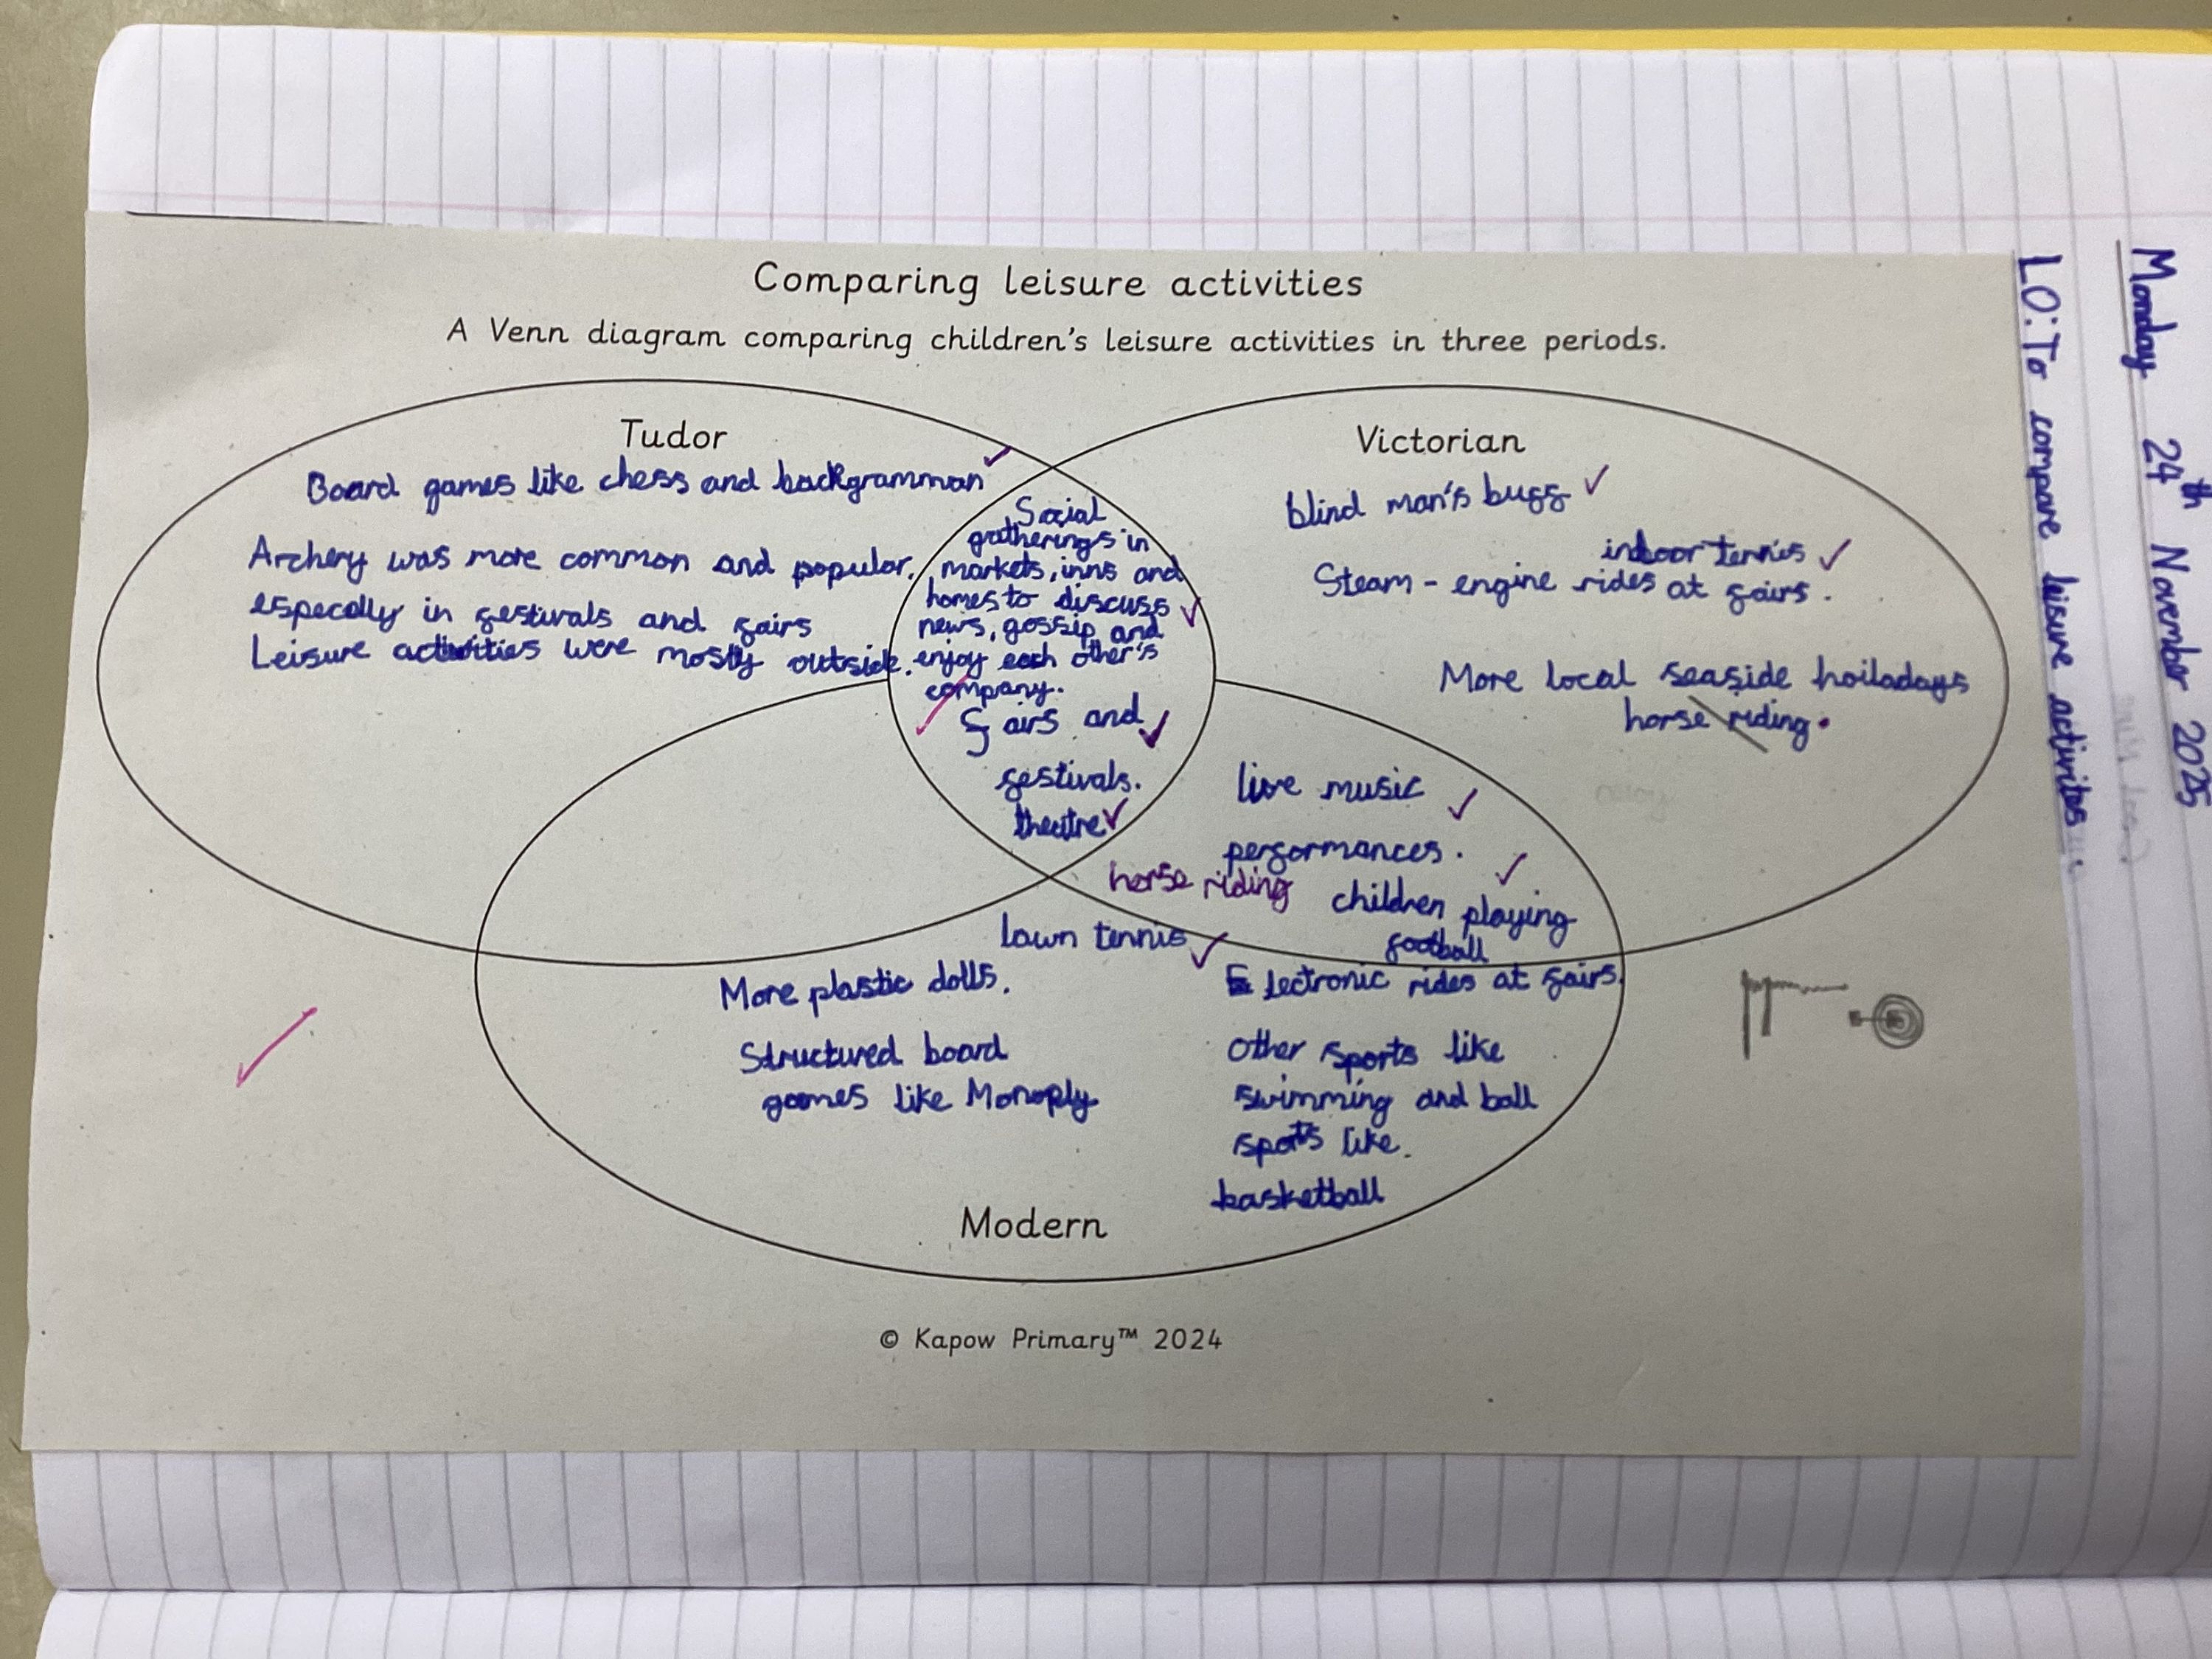 Monday 24th November 2025
LO: To compare leisure activites
Comparing leisure activities
A Venn diagram comparing children's leisure activities in three periods.
Tudor
Board games like chess and backgramman
Archery was more common and popular,
especally in festivals and fairs
Leisure activities were mostly outside.
Social
gatherings in
markets, inns and
homes to discuss
news, gossip and
enjoy each other's
company.
Fairs and
festivals.
theatre
Victorian
blind man's buff
indoor tennis
Steam-engine rides at fairs.
More local seaside hoiladays
horse riding.
live music
performances.
horse riding
children playing
football
lawn tennis
More plastic dolls.
Structured board
games like Monoply
Electronic rides at fairs.
Other sports like
swimming and ball
sports like.
basketball
Modern
© Kapow Primary™ 2024